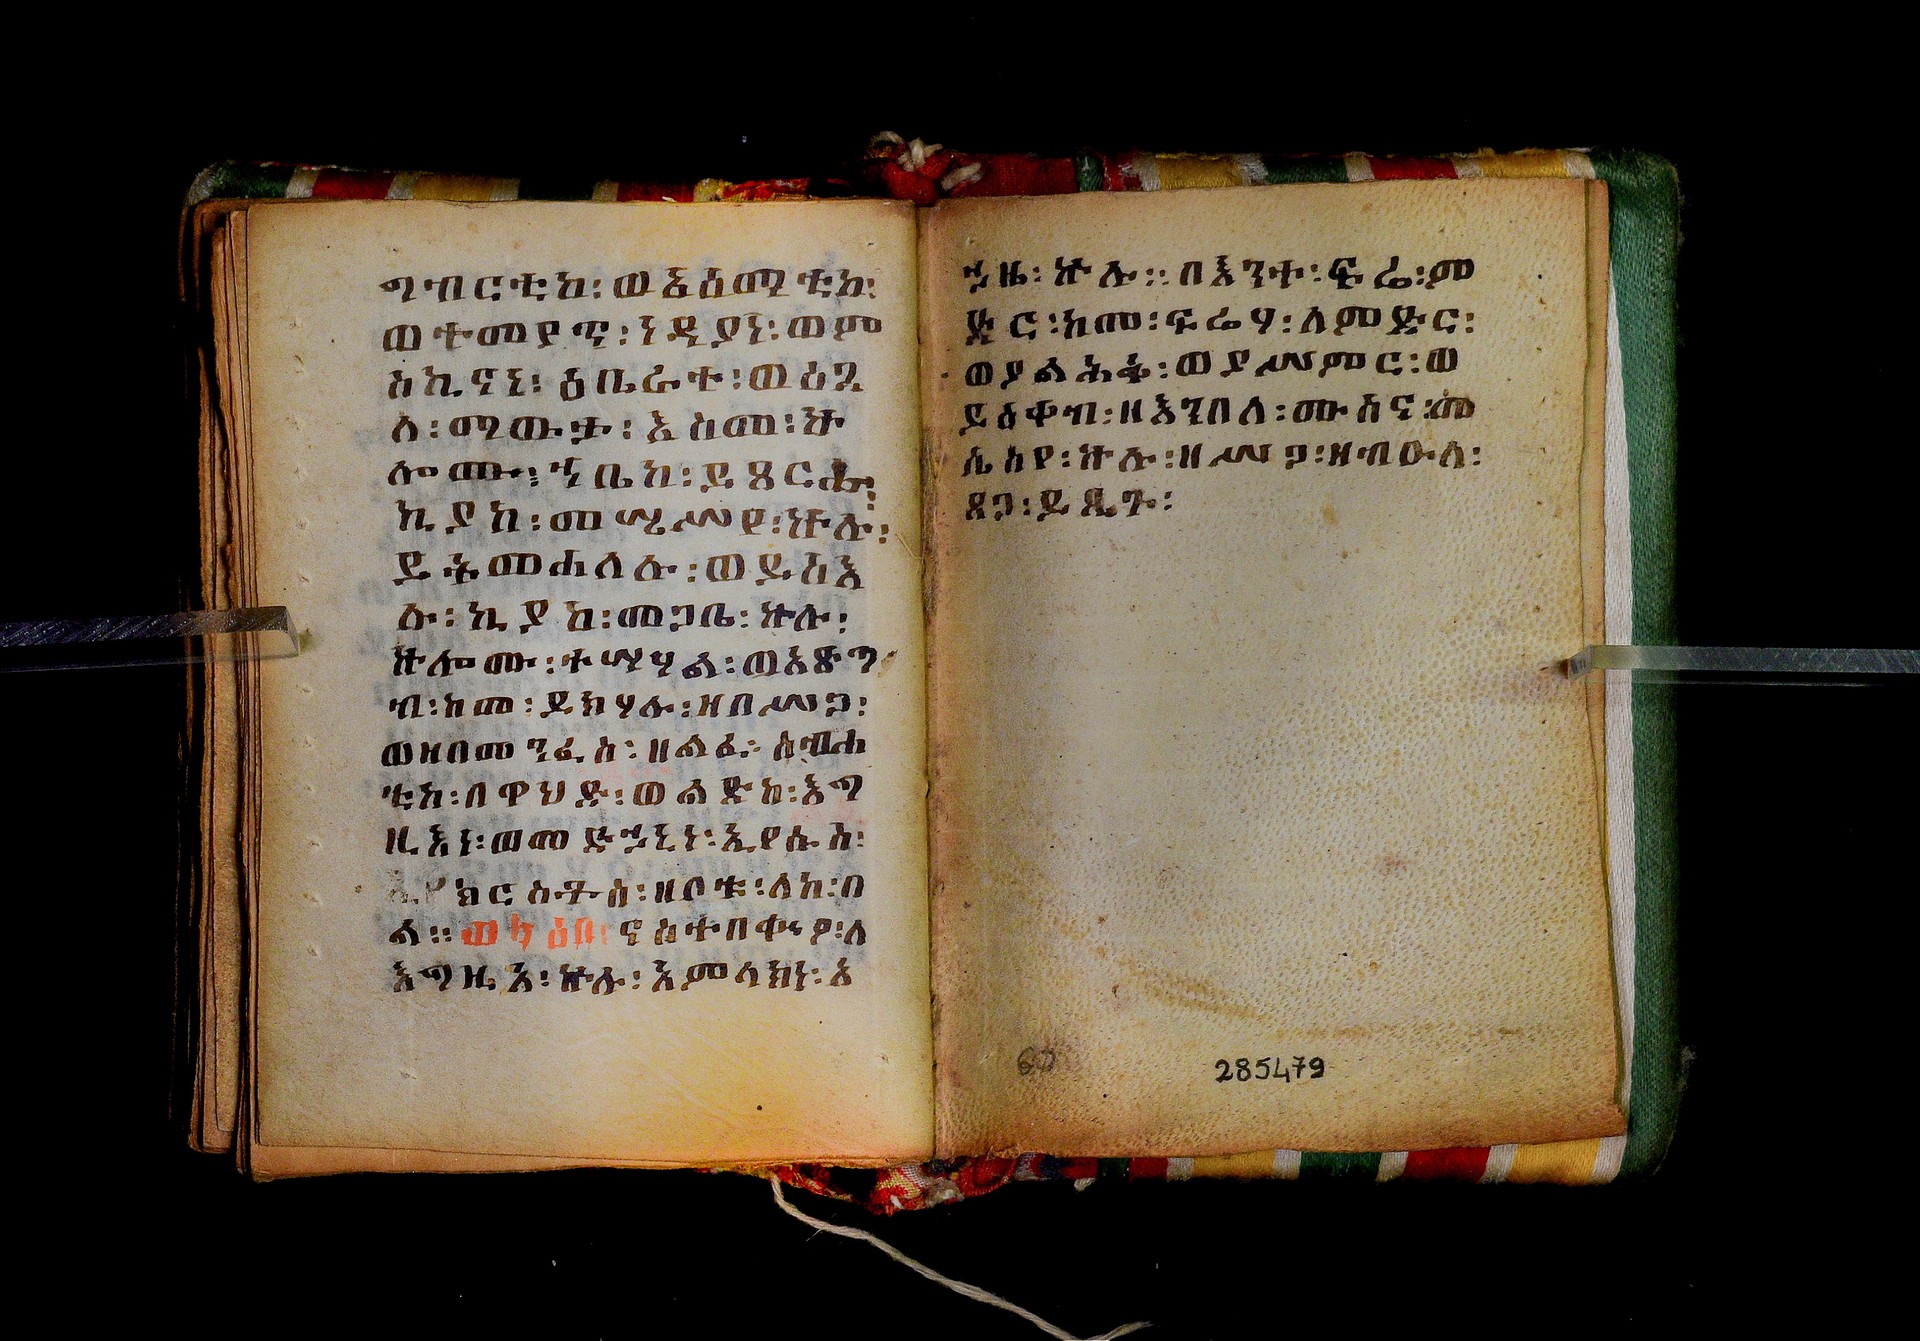 ግብርቲከ፡ ወጿዕሚቲከ፡
ወተመያጢ፡ ነዲያነ፡ ወም
ስኪኖነ፡ ዕቤራተ፡ ወዕጓ
ለ፡ ማውታ፡ እስመ፡ ኵ
ሎሙ፡ ኀቤከ፡ ይጸርሑ፡
ኪያከ፡ መሤሠየ፡ ኵሉ፡
ይትመሐለሉ፡ ወይስእ
ሉ፡ ኪያከ፡ መጋቤ፡ ኵሉ፡
ኵሎሙ፡ ተሣሃል፡ ወአጽን
ብ፡ ከመ፡ ይክሃሉ፡ ዘበሥጋ፡
ወዘበመንፈስ፡ ዘልፈ፡ ስብሐ
ቲከ፡ በዋህድ፡ ወልድከ፡ እግ
ዚእነ፡ ወመድኃኒነ፡ ኢየሱስ፡
ክርስቶስ፡ ዘቦቱ፡ ለከ፡ በ
ል። ወካዕበ፡ ናስተበቍዖ፡ ለ
እግዚአ፡ ኵሉ፡ አምላክነ፡ አ
ኃዜ፡ ኵሉ። በእንተ፡ ፍሬ፡ ም
ድር፡ ከመ፡ ፍሬሃ፡ ለምድር፡
ወያልሕቅ፡ ወያሠምር፡ ወ
ይዕቀብ፡ ዘእንበለ፡ ሙስና፡ መ
ሴስየ፡ ኵሉ፡ ዘሥጋ፡ ዘብዑለ፡
ጸጋ፡ ይጼጉ፡
60
285479